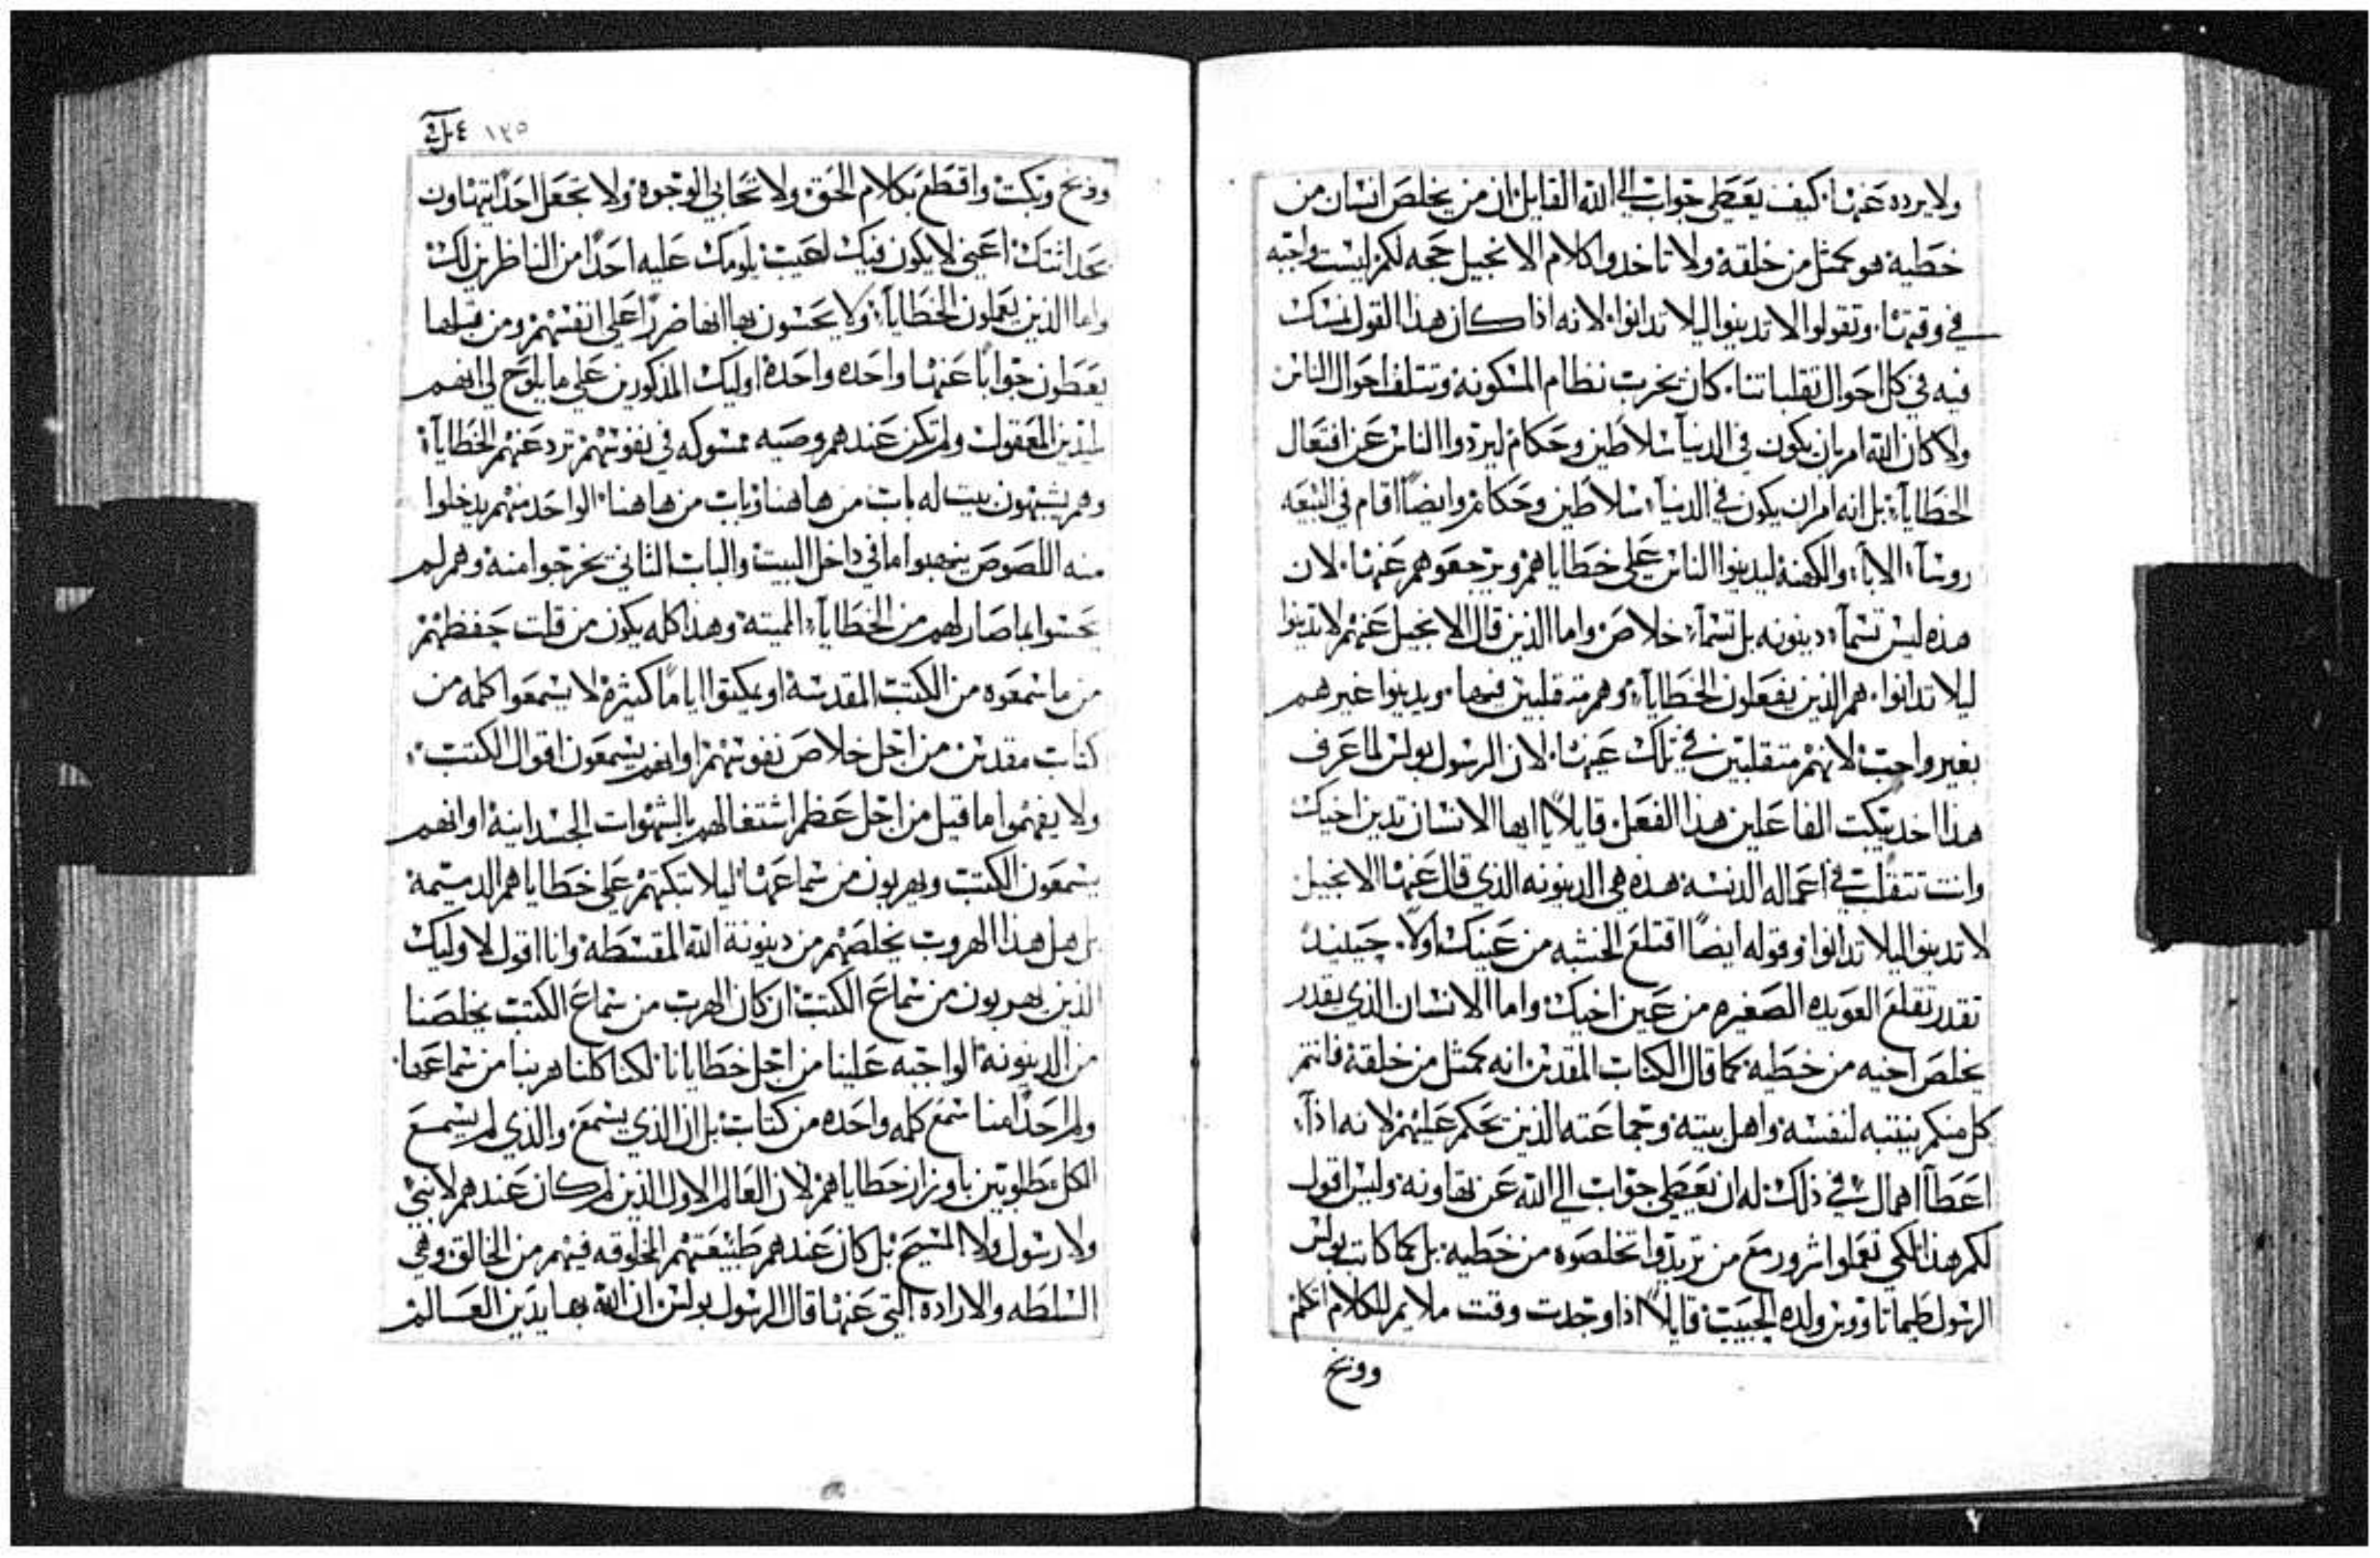 ولا يرده عنها. كيف يعطي جواب الي الله القايل ان من يخلص انسان من
خطية هو كمثل من خلقه ولا تاخدوا كلام الانجيل حجه لكم ليست واجبه
في وقتها. وتقولوا لا تدينوا ليلا تدانوا. لانه اذا كان هذا القول نمسك
فيه في كل احوال تقلباتنا. كان يخرب نظام المسكونه وتتلف احوال الناس
ولا كان الله امر بان يكون في الدنيآ سلاطين وحكام ليردوا الناس عن افتعال
الخطايآ. بل انه امر ان يكون في الدنيآ سلاطين وحكام وايضًا اقام في البيعه
روسآ الابآ والكهنه ليدينوا الناس علي خطاياهم ويرجعوهم عنها. لان
هذه ليس تسمآ دينونه بل تسمآ خلاص واما الذين قال الانجيل عنهم لا تدينوا
ليلا تدانوا. هم الذين يفعلون الخطايآ وهم متقلبين فيها. ويدينوا غيرهم
بغير واجب لانهم متقلبين في تلك عينها. لان الرسول بولس لما عرف
هذا اخد يبكت الفاعلين هذا الفعل قايلاً يا ايها الانسان تدين اخيك
وانت تتقلب في اعماله الدنسه هذه هي الدينونه الذي قال عنها الانجيل
لا تدينوا ليلا تدانوا وقوله ايضًا اقتلع الخشبه من عينك اولاً. حينيد
تقدر تقلع العويده الصغيره من عين اخيك واما الانسان الذي يقدر
يخلص اخيه من خطيه كما قال الكتاب المقدس انه كمثل من خلقه فانتم
كل منكم ينتبه لنفسه واهل بيته وجماعته الذين يحكم عليهم لانه اذآ
اعطآ اهمال في ذلك له ان يعطي جواب الي الله عن تهاونه وليس اقول
لكم هذا لكي تعملوا شرور مع من تريدوا تخلصوه من خطيه بل كما كاتب بولس
الرسول طيماتاووس ولده الحبيب قايلاً اذا وجدت وقت ملايم للكلام اتكلم
ووبخ
١٣٥
ووبخ وبكت واقطع بكلام الحق ولا تحابي الوجوه ولا تجعل احدًا يتهاون
بحداثتك اعني لا يكون فيك عيب يلومك عليه احدًا من الناظرين لك
واما الذين يعملون الخطايآ ولا يحسون بها انها ضررًا علي انفسهم ومن قبلها
يعطون جوابًا عنها واحده واحده اوليك المذكورين علي ما يلوح لي انهم
بليدين المعقول ولم تكن عندهم وصيه ممسوكه في نفوسهم ترد عنهم الخطايآ
وهم يشبهون بيت له باب من هاهنا وباب من هاهنا الواحد منهم يدخلوا
منه اللصوص ينهبوا ما في داخل البيت والباب الثاني يخرجوا منه وهم لم
يحسوا بما صار لهم من الخطايآ المميته وهذا كله يكون من قلت حفظهم
من ما سمعوه من الكتب المقدسه او يمكتوا ايامًا كثيرة لا يسمعوا كلمه من
كتاب مقدس من اجل خلاص نفوسهم او انهم يسمعون اقوال الكتب
ولا يفهموا ما قيل من اجل عظم اشتغالهم بالشهوات الجسدانية او انهم
يسمعون الكتب ويهربون من سماعها ليلا تبكتهم علي خطاياهم الدميمة
بل هل هذا الهروب يخلصهم من دينونة الله المقسطة وانا اقول لاوليك
الذين يهربون من سماع الكتب ان كان الهرب من سماع الكتب يخلصنا
من الدينونة الواجبه علينا من اجل خطايانا لكنا كلنا هربنا من سماعها.
ولم احدًا منا سمع كلمه واحده من كتاب بل ان الذي يسمع والذي لم يسمع
الكل مطلوبين باوزار خطاياهم لان العالم الاول الذين لم كان عندهم لا نبي
ولا رسول ولا المسيح بل كان عندهم طبيعتهم المخلوقه فيهم من الخالق وهي
السلطه والارادة التي عنها قال الرسول بولس ان الله بها يدين العالم